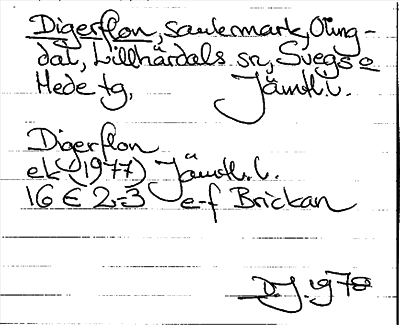 Digerflon, sankmark, Öing-
dal, Lillhärdals sn, Svegs o
Hede tg, Jämtl. l.
Digerflon
ek (1977) Jämtl. l.
16 E 2-3 e-f Brickan
D.J. 1978